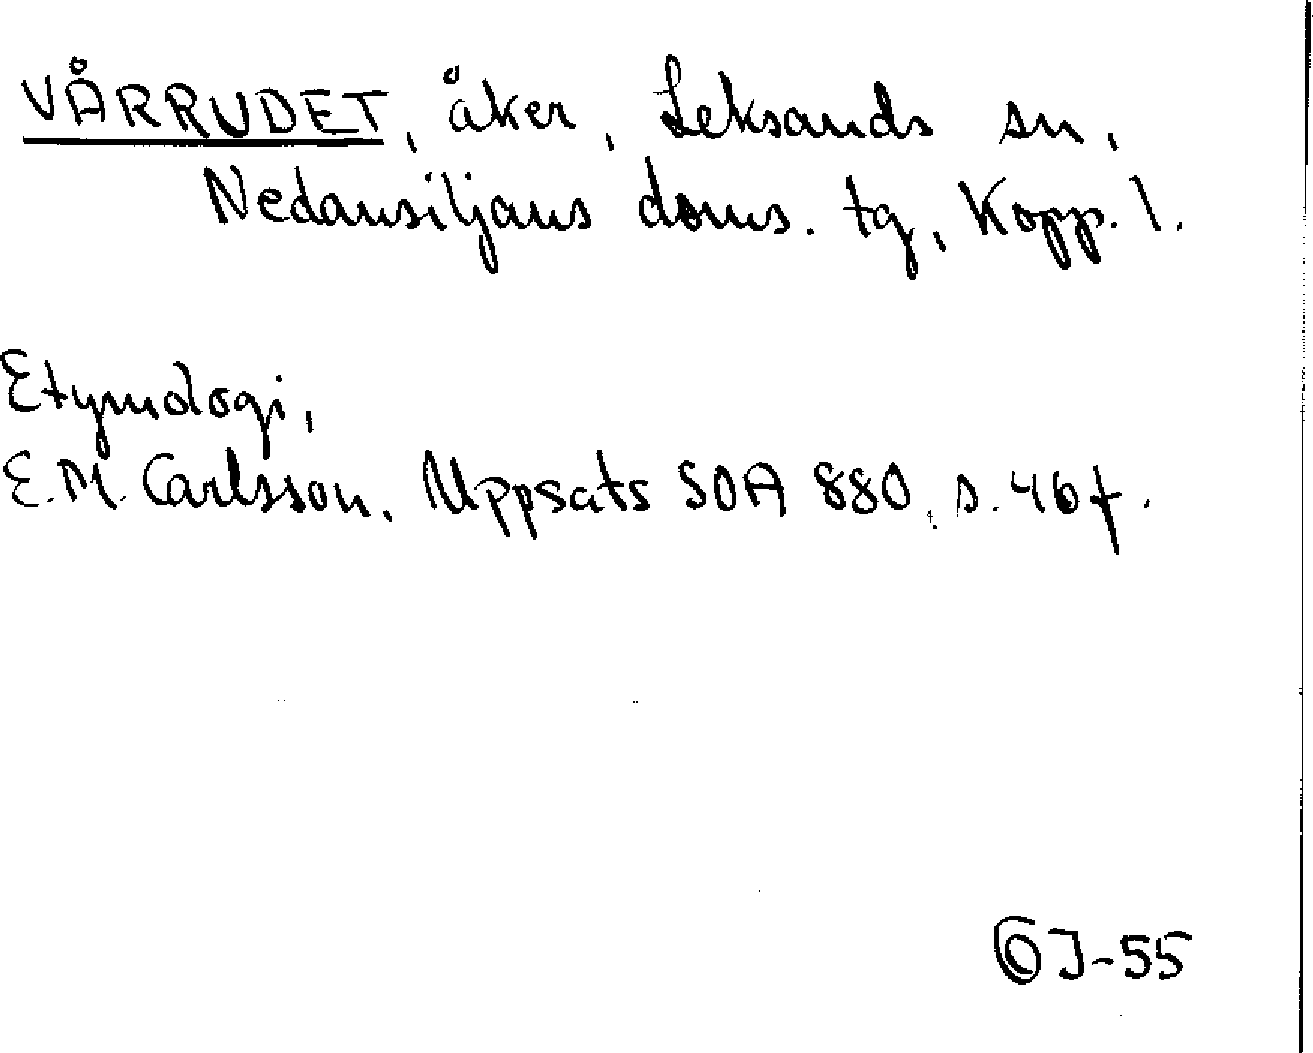 VÅRRUDET, åker, Leksands sn,
Nedansiljans doms. tg, Kopp. l.
Etymologi,
E.M. Carlsson, Uppsats SOA 880, s. 46 f.
J-55